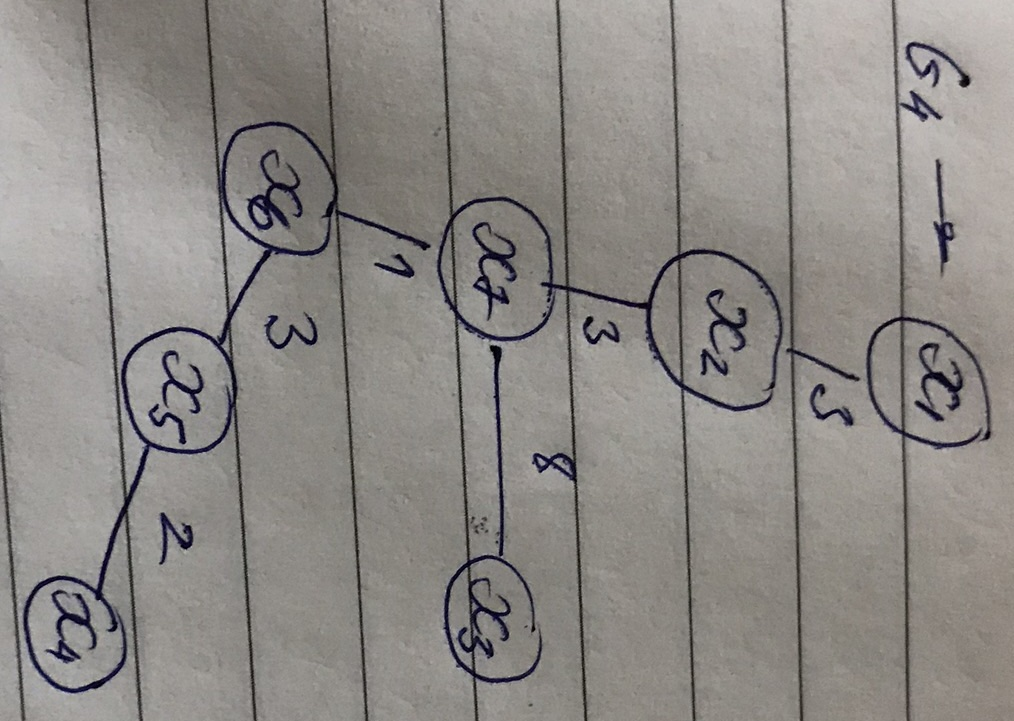 G4 →
x1
5
x2
3
x7
8
x3
1
x6
3
x5
2
x4